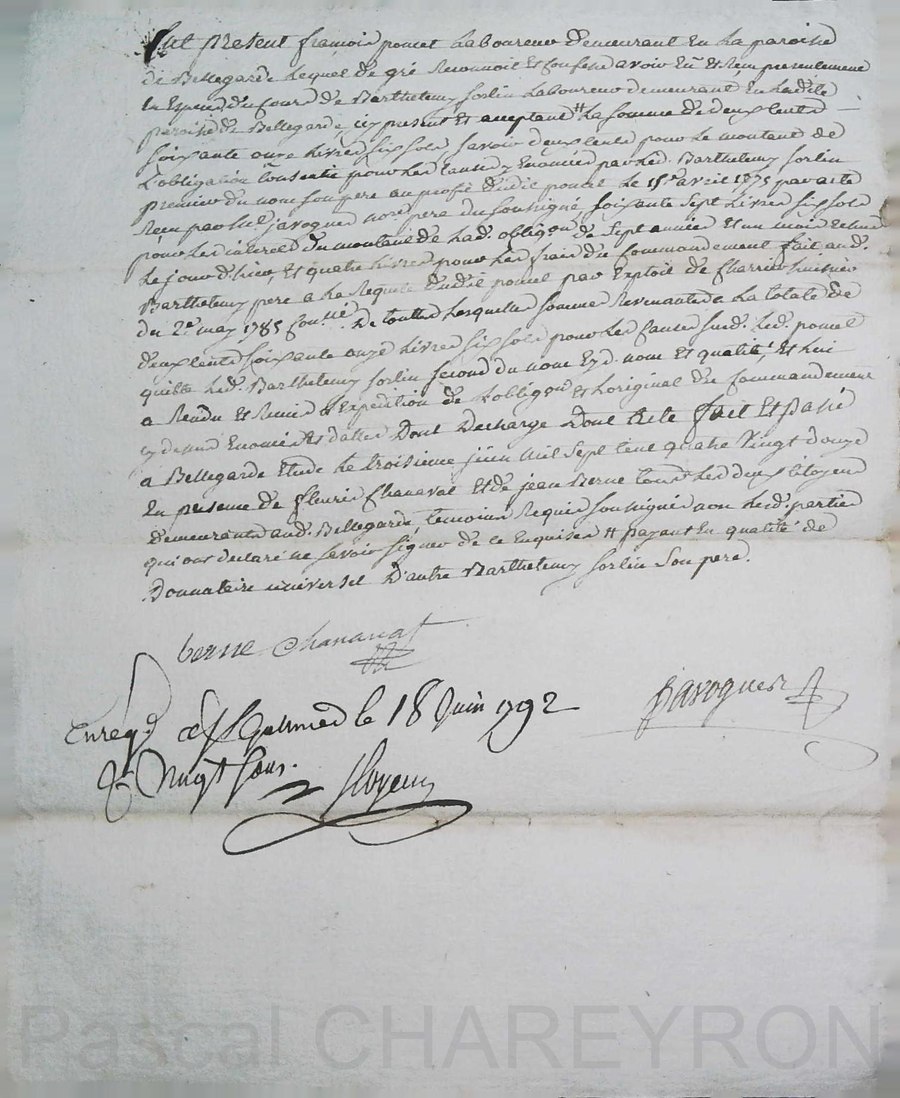 fut present francois poncet Laboureur demeurant en La paroisse
de Bellegarde Lequel de gré Reconnoit et confesse avoir Eu et Reçu presentement
En Especes du cours de Barthelemy sorlin Laboureur demeurant en Ladite
paroisse de Bellegarde, icy present et acceptant # La somme de deux cents
soixante onze Livres six sols savoir deux cents pour Le montant de
L'obligation Consentie pour Les causes y Enoncées par Led. Barthelemy sorlin
premier du nom son pere au profit dudit poncet Le 15e avril 1775 par acte
Reçu par Me javogues nore pere du soussigné soixante sept Livres six sols
pour Les interets du montant de Lad. obligon de sept années et un mois echus
Le jour d'hier, et quatre Livres pour Les frais du Commandement fait aud.
Barthelemy pere a La Requete dudit poncet par Exploit de Charrin huissier
du 2e may 1785 De toutes Lesquelles sommes Revenantes a La totale de
deux cents soixante onze Livres six sols pour Les causes susd. Led. poncet
quitte Led. Barthelemy sorlin second du nom Esd. nom et qualité, et lui
a Rendu et Remis L'Expedition de L'obligon et L'original du Commandement
cy dessus Enoncés et dattés Dont Decharge Dont Acte fait et passé
a Bellegarde Etude Le troisieme juin mil sept cent quatre vingt douze
En presence de fleurie Chanavat et de jean Berne tous Les deux citoyens
demeurants aud. Bellegarde, temoins Requis soussignés non Lesd. parties
qui ont declaré ne savoir signer de ce Enquises # payant En qualité de
Donnataire universel D'autre Barthelemy sorlin son pere.
berne chanavat
javogues
Enregd. a St Galmier le 18 Juin 1792
R. vingt sous.
Pascal CHAREYRON